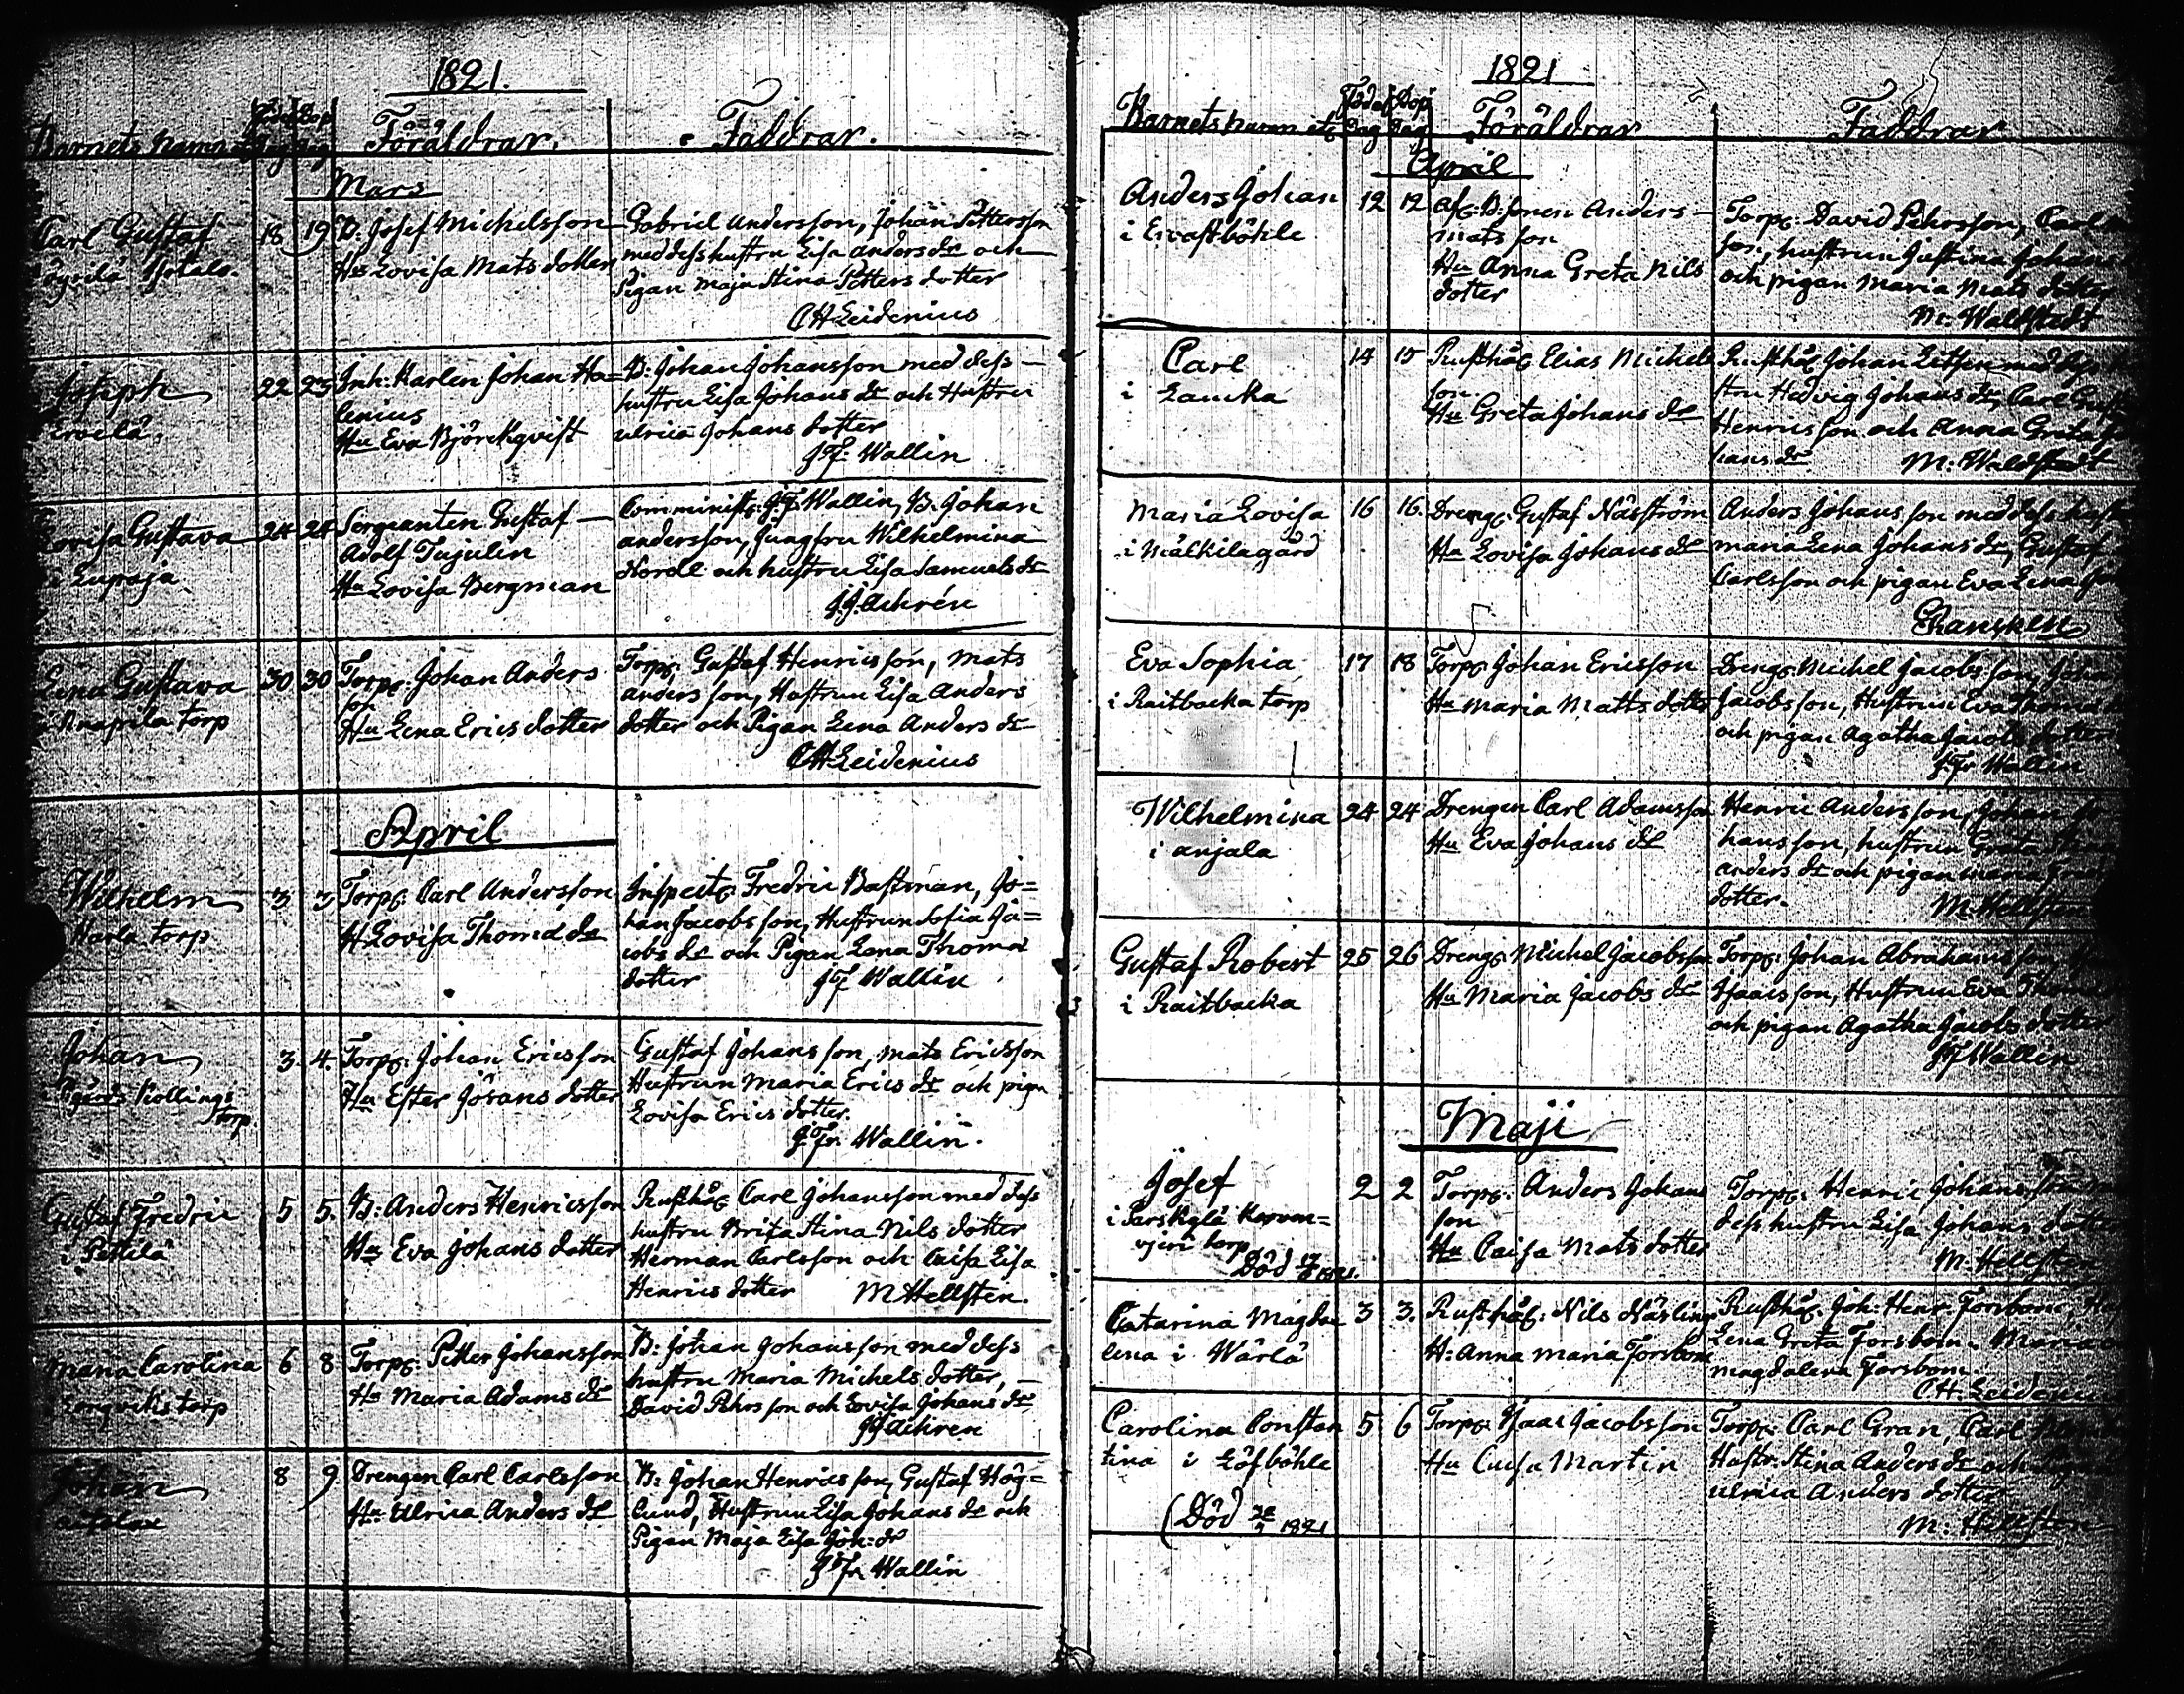 1821.
Barnets namn
Födel Dop
Dag Dag
Föräldrar.
Faddrar.
Mars
Carl Gustaf
18 19
B: Josef Michelsson
Hu Lovisa Mats dotter
Gabriel Andersson, Johan Pettersson
med dess hustru Lisa Anders dr och
Pigan Maja Stina Petters dotter
CH Leidenius
Joseph
Ervelä.
22 25
Inh: Karlen Johan Ha=
lenius
Hu Eva Björckqvist
B: Johan Johansson med dess
hustru Lisa Johans dr och Hustru
Ulrica Johans dotter
J F: Wallin
Lovisa Gustava
i Lupaja
24 24
Sergeanten Gustaf
Adolf Tujulin
Hu Lovisa Bergman
Comminist: J. F. Wallin, B. Johan
Andersson, Jungfru Wilhelmina
Nordl och hustru Lisa Samuels dr
J. J. Achrén
Lena Gustava
Knapila torp
30 30
Torp: Johan Anders
son
Hu Lena Erics dotter
Torp: Gustaf Henricsson, Mats
Andersson, Hustrun Lisa Anders
dotter och Pigan Lena Anders dr
CH Leidenius
April
Wilhelm
Warla torp
3 3
Torp: Carl Andersson
H Lovisa Thomæ dr
Inspect: Fredric Bastman, Jo=
han Jacobsson, Hustrun Sofia Ja=
cobs dr och Pigan Lena Thomæ
dotter J F Wallin
Johan
Kollings
torp
3. 4.
Torp: Johan Ericsson
Hu Ester Jörans dotter
Gustaf Johansson, Mats Ericsson
Hustrun Maria Erics dr och pigan
Lovisa Erics dotter.
J. Fr. Wallin.
Gustaf Fredric
i Pettilä
5 5.
B: Anders Henricsson
Hu Eva Johans dotter
Rusthål Carl Johansson med dess
hustru Brita Stina Nils dotter
Herman Carlsson och Caisa Lisa
Henrics dotter M Hellsten.
Maria Carolina
Longviks torp
6 8
Torp: Petter Johansson
Hu Maria Adams dr
B: Johan Johansson med dess
hustru Maria Michels dotter,
David Pehrsson och Lovisa Johans dr
JJ Achren
Johan
8 9
Drengen Carl Carlsson
Hu Ulrica Anders dr
B: Johan Henricsson, Gustaf Hög=
lund, Hustrun Lisa Johans dr och
Pigan Maja Lisa Joh: dr
J. Fr Wallin
1821
Barnets namn etc
Födel Dop
Dag Dag
Föräldrar
Faddrar
April
Anders Johan
i Ervastböhle
12 12
Afs: B: sonen Anders
Matsson
Hu Anna Greta Nils
dotter
Torp: David Pehrsson, Carl
son, hustrun Justina Johans
och pigan Maria Mats dotter
M. Waldstedt
Carl
i Laucka
14 15
Rusthål Elias Michels
son
Hu Greta Johans dr
Rusthål Johan Littsen med dess
stru Hedvig Johans dr, Carl
Henricsson och Anna Greta Jo
hans dr M: Waldstedt
Maria Lovisa
i Mälkilagård
16 16.
Dreng: Gustaf Näsström
Hu Lovisa Johans dr
Anders Johansson med dess hustru
Maria Lena Johans dr, Gustaf
Carlsson och pigan Eva Lena
Eva Sophia
i Raitbacka torp
17 18
Torp: Johan Ericsson
Hu Maria Matts dotter
Dreng: Michel Jacobsson, Johan
Jacobsson, Hustrun Eva Thomæ
och pigan Agatha Jacobs dotter
J. Fr Wallin
Wilhelmina
i Anjala
24 24
Drengen Carl Adamsson
Hu Eva Johans dr
Henric Andersson, Johan
hansson, hustrun Greta
Anders dr och pigan Maria
dotter. M. Hellsten
Gustaf Robert
i Raitbacka
25 26
Dreng: Michel Jacobsson
Hu Maria Jacobs dr
Torp: Johan Abrahamsson,
Isaacsson, Hustrun Eva Thomæ
och pigan Agatha Jacobs dotter
J F Wallin
Maji
Josef
i Parskylä Korven=
torp
Död 1821.
2 2
Torp: Anders Johans
son
Hu Caisa Mats dotter
Torp: Henric Johansson
dess hustru Lisa Johans dotter
M. Hellsten
Catarina Magda
lena i Wärlä
3 3.
Rusthål: Nils Näsling
H: Anna Maria Forsbom
Rusthål: Joh: Henr: Forsbom,
Lena Greta Forsbom. Maria
Magdalena Forsbom.
CH. Leidenius
Carolina Constan
tina i Löfböhle
(Död 1821
5 6
Torp: Isaac Jacobsson
Hu Caisa Martin
Torp: Carl Gran, Carl
Hustr. Stina Anders dr och
Ulrica Anders dotter
M: Hellsten